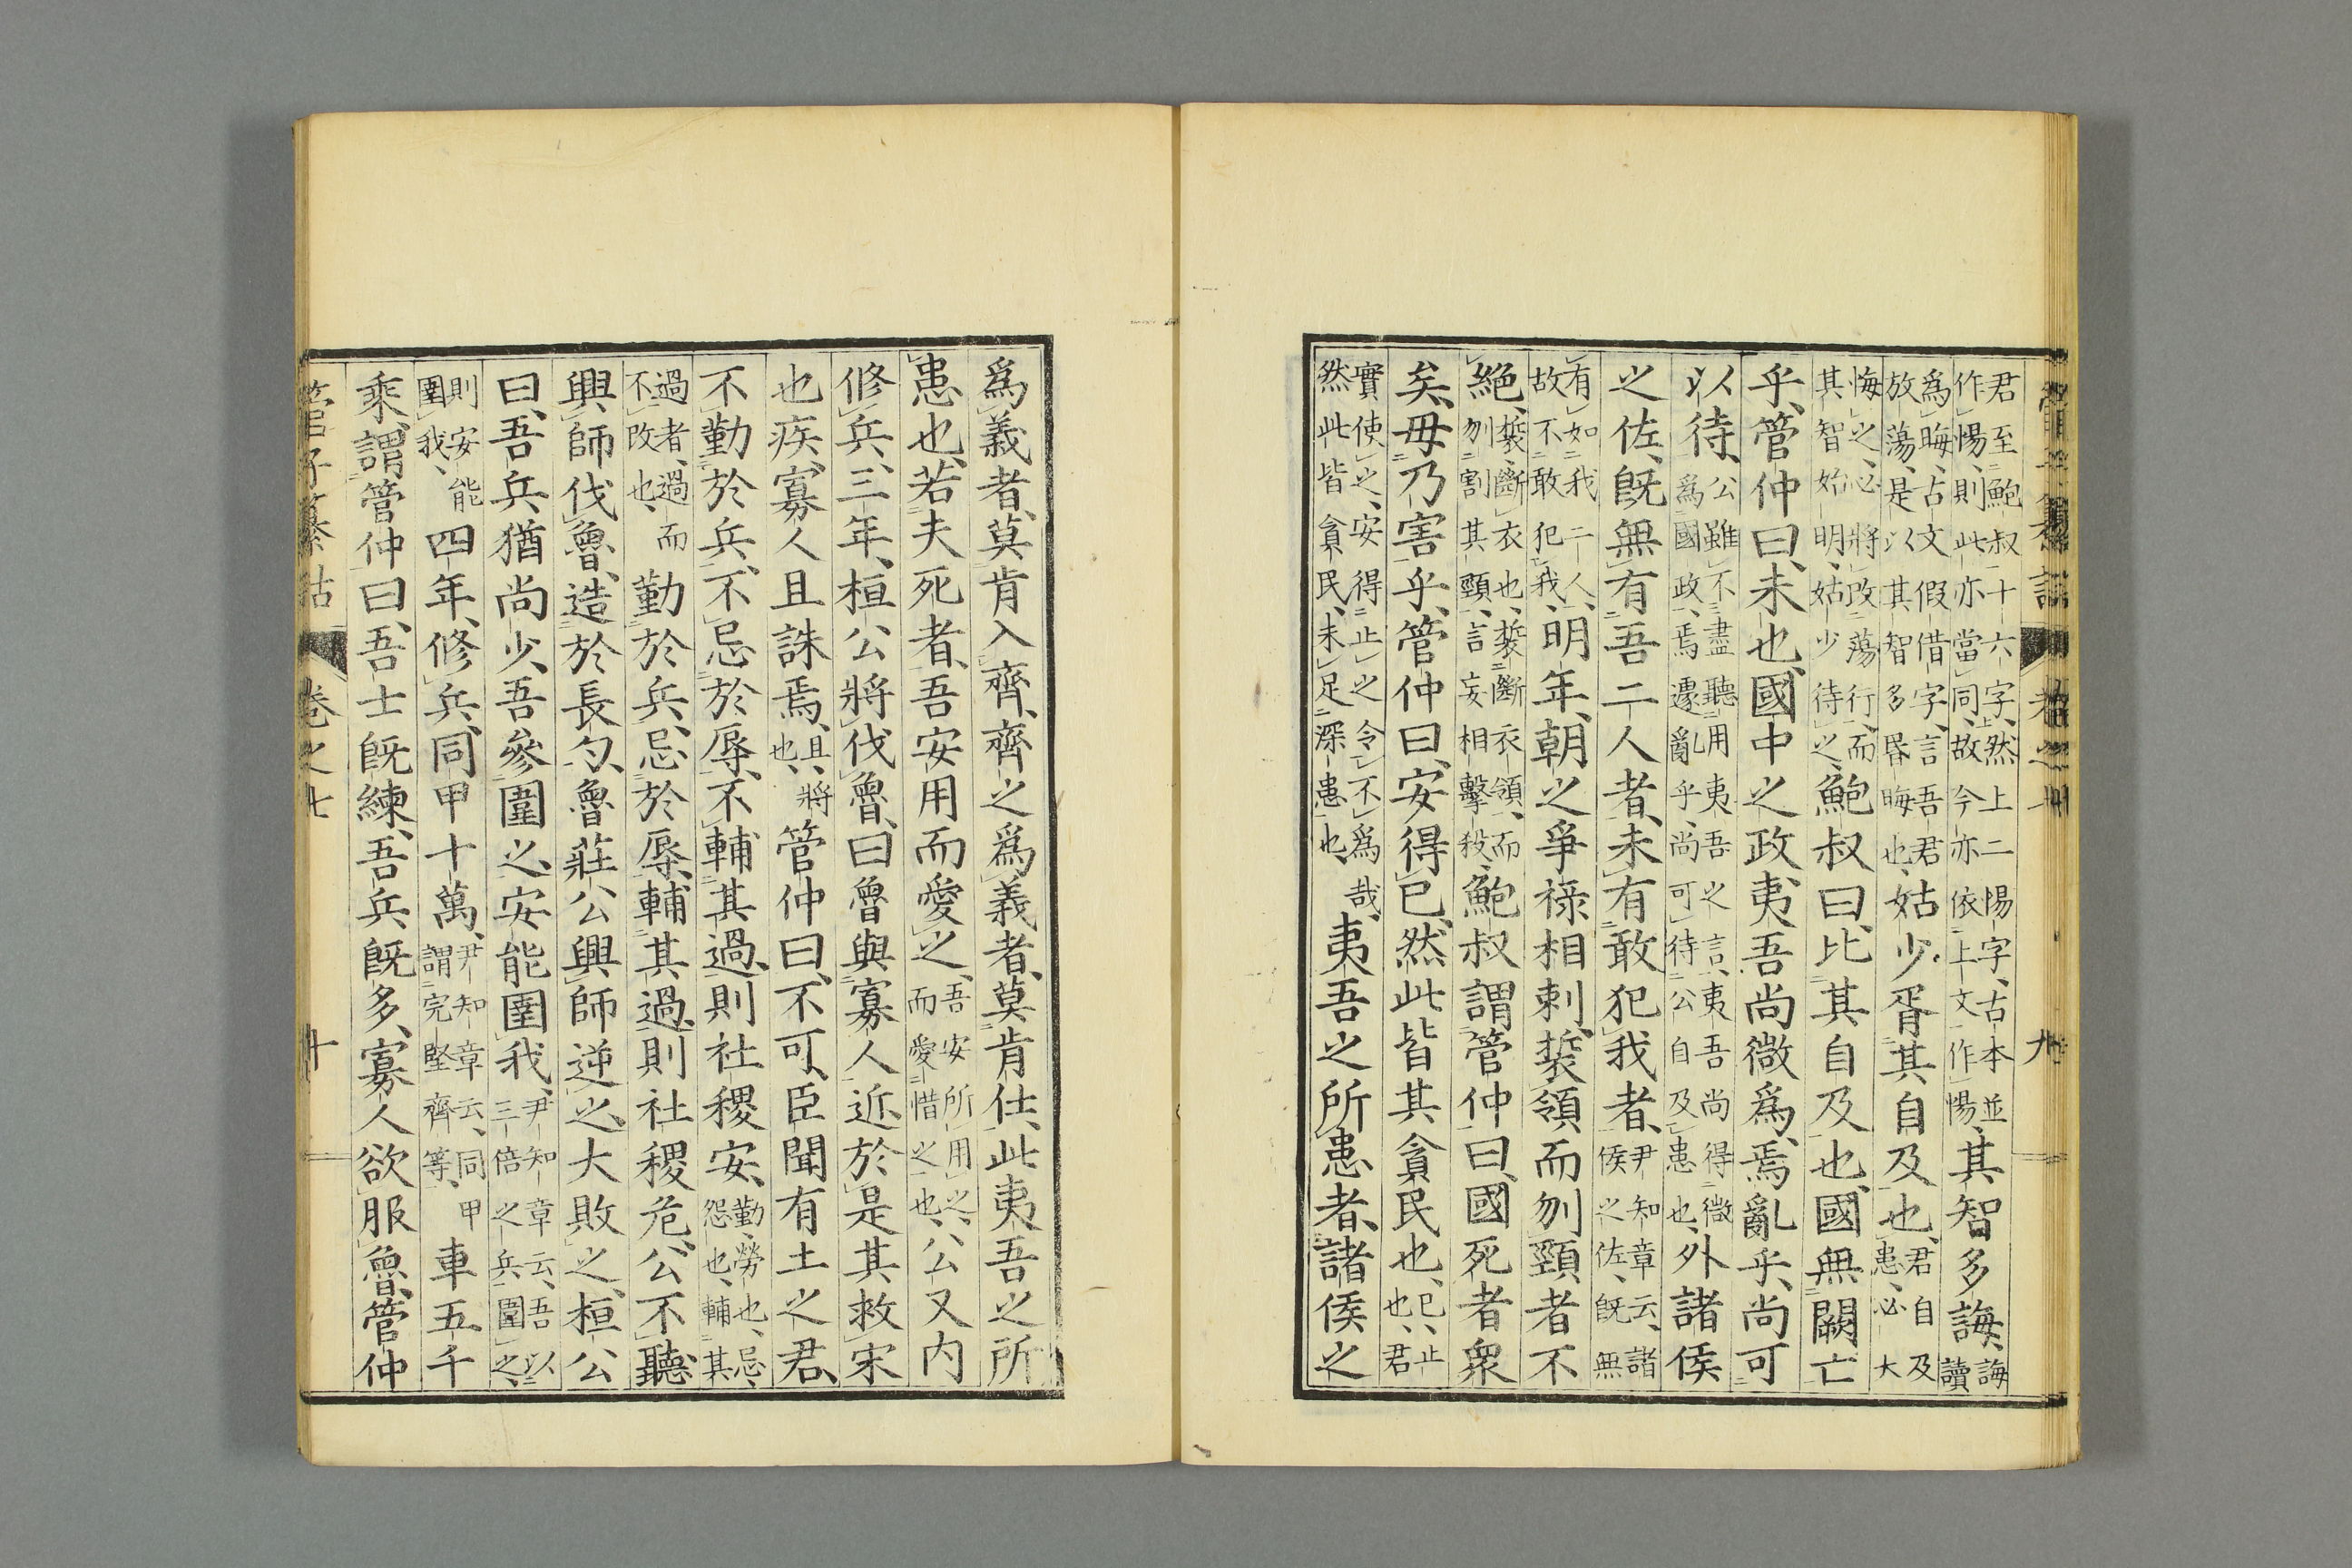 管子纂詁 卷之七 九
君至鮑叔十六字、然上二惕字、古本並作惕、則此亦當同、故今亦依上文作惕、其智多誨、誨讀
爲晦、古文假借字、言吾君放蕩、是以其智多昏晦也、姑少胥其自及也、君自及患、必大
悔之、必將改蕩行、而其智始明、姑少待之、鮑叔曰、比其自及也、國無闕亡
乎、管仲曰、未也、國中之政、夷吾尚微爲、焉亂乎、尚可
以待、公雖不盡聽用夷吾之言、夷吾尚得微爲國政、焉遽亂乎、尚可待公自及患也、外諸侯
之佐、既無有吾二人者、未有敢犯我者、尹知章云、諸侯之佐、既無
有如我二人、故不敢犯我、明年、朝之爭祿相刺、裚領而刎頸者不
絕、裚、斷衣也、裚斷衣領、而刎割其頸、言妄相擊殺、鮑叔謂管仲曰、國死者衆
矣、毋乃害乎、管仲曰、安得已、然此皆其貪民也、已、止也、君
實使之、安得止之令不爲哉、然此皆貪民、未足深患也、夷吾之所患者、諸侯之
爲義者、莫肯入齊、齊之爲義者、莫肯仕、此夷吾之所
患也、若夫死者、吾安用而愛之、吾安所用之、而愛惜之也、公又內
修兵、三年、桓公將伐魯、曰、魯與寡人近、於是其救宋
也疾、寡人且誅焉、且、將也、管仲曰、不可、臣聞有土之君、
不勤於兵、不忌於辱、不輔其過、則社稷安、勤、勞也、忌、怨也、輔其
過者、過而不改也、勤於兵、忌於辱、輔其過、則社稷危、公不聽、
興師伐魯、造於長勺、魯莊公興師逆之、大敗之、桓公
曰、吾兵猶尚少、吾參圍之、安能圉我、尹知章云、吾以三倍之兵圍之、
則安能圉我、四年、修兵、同甲十萬、尹知章云、同甲謂完堅齊等、車五千
乘、謂管仲曰、吾士既練、吾兵既多、寡人欲服魯、管仲
管子纂詁 卷之七 十